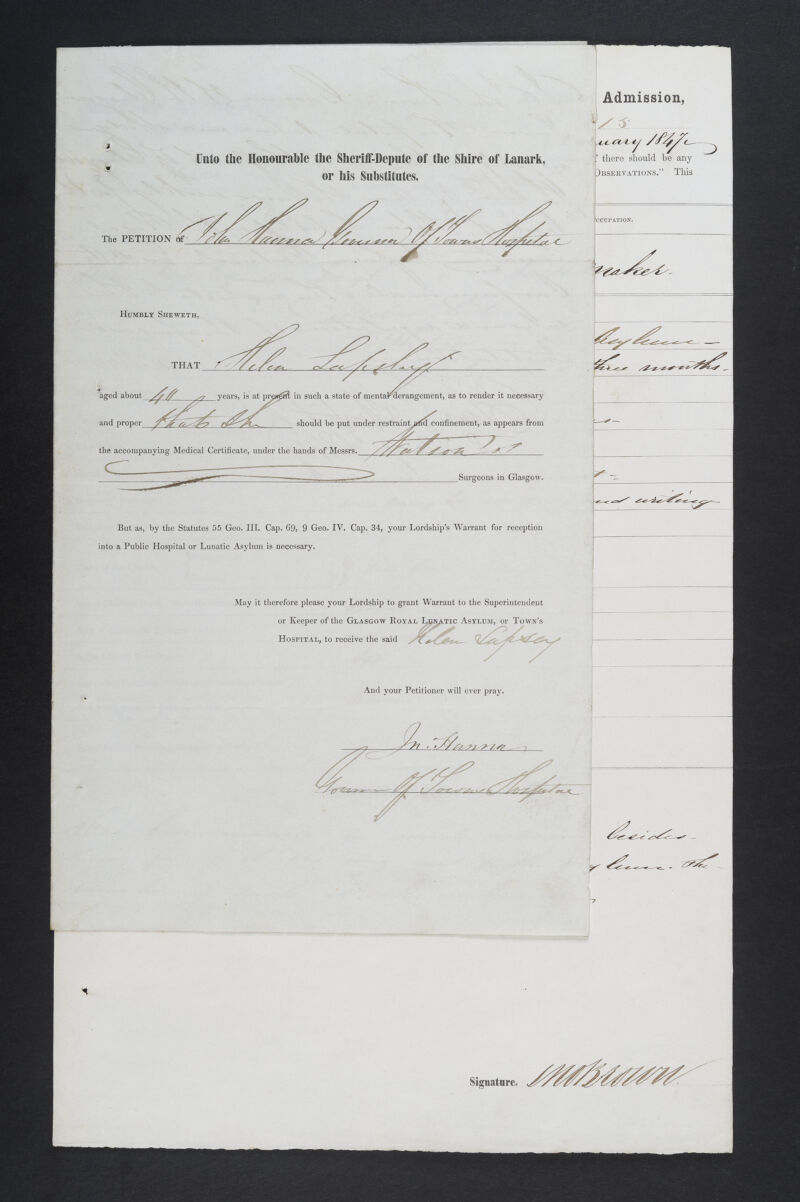 Unto the Honourable the Sheriff-Depute of the Shire of Lanark,
or his Substitutes.
The PETITION of John Hanna Governor Of Towns Hospital
HUMBLY SHEWETH,
THAT Helen Lapsley
aged about years, is at present in such a state of mental derangement, as to render it necessary
and proper that She should be put under restraint and confinement, as appears from
the accompanying Medical Certificate, under the hands of Messrs. Watson
Surgeons in Glasgow.
But as, by the Statutes 55 Geo. III. Cap. 69, 9 Geo. IV. Cap. 34, your Lordship's Warrant for reception
into a Public Hospital or Lunatic Asylum is necessary.
May it therefore please your Lordship to grant Warrant to the Superintendent
or Keeper of the GLASGOW ROYAL LUNATIC ASYLUM, or TOWN'S
HOSPITAL, to receive the said Helen Lapsley
And your Petitioner will ever pray.
Jn. Hanna
Governor Of Towns Hospital
Admission,
18
uary 1847
there should be any
OBSERVATIONS." This
CCUPATION.
maker.
Asylum -
three months -
nd writing
besides
ylum. The
Signature. Brown